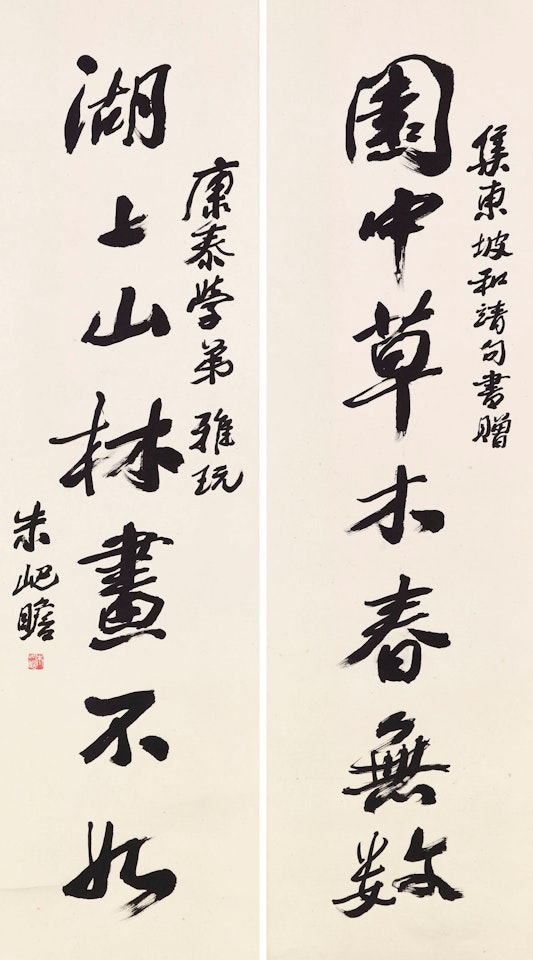 集東坡和靖句書贈
園中草木春無数
湖上山林畫不如
康泰學弟 雅玩
朱屺瞻